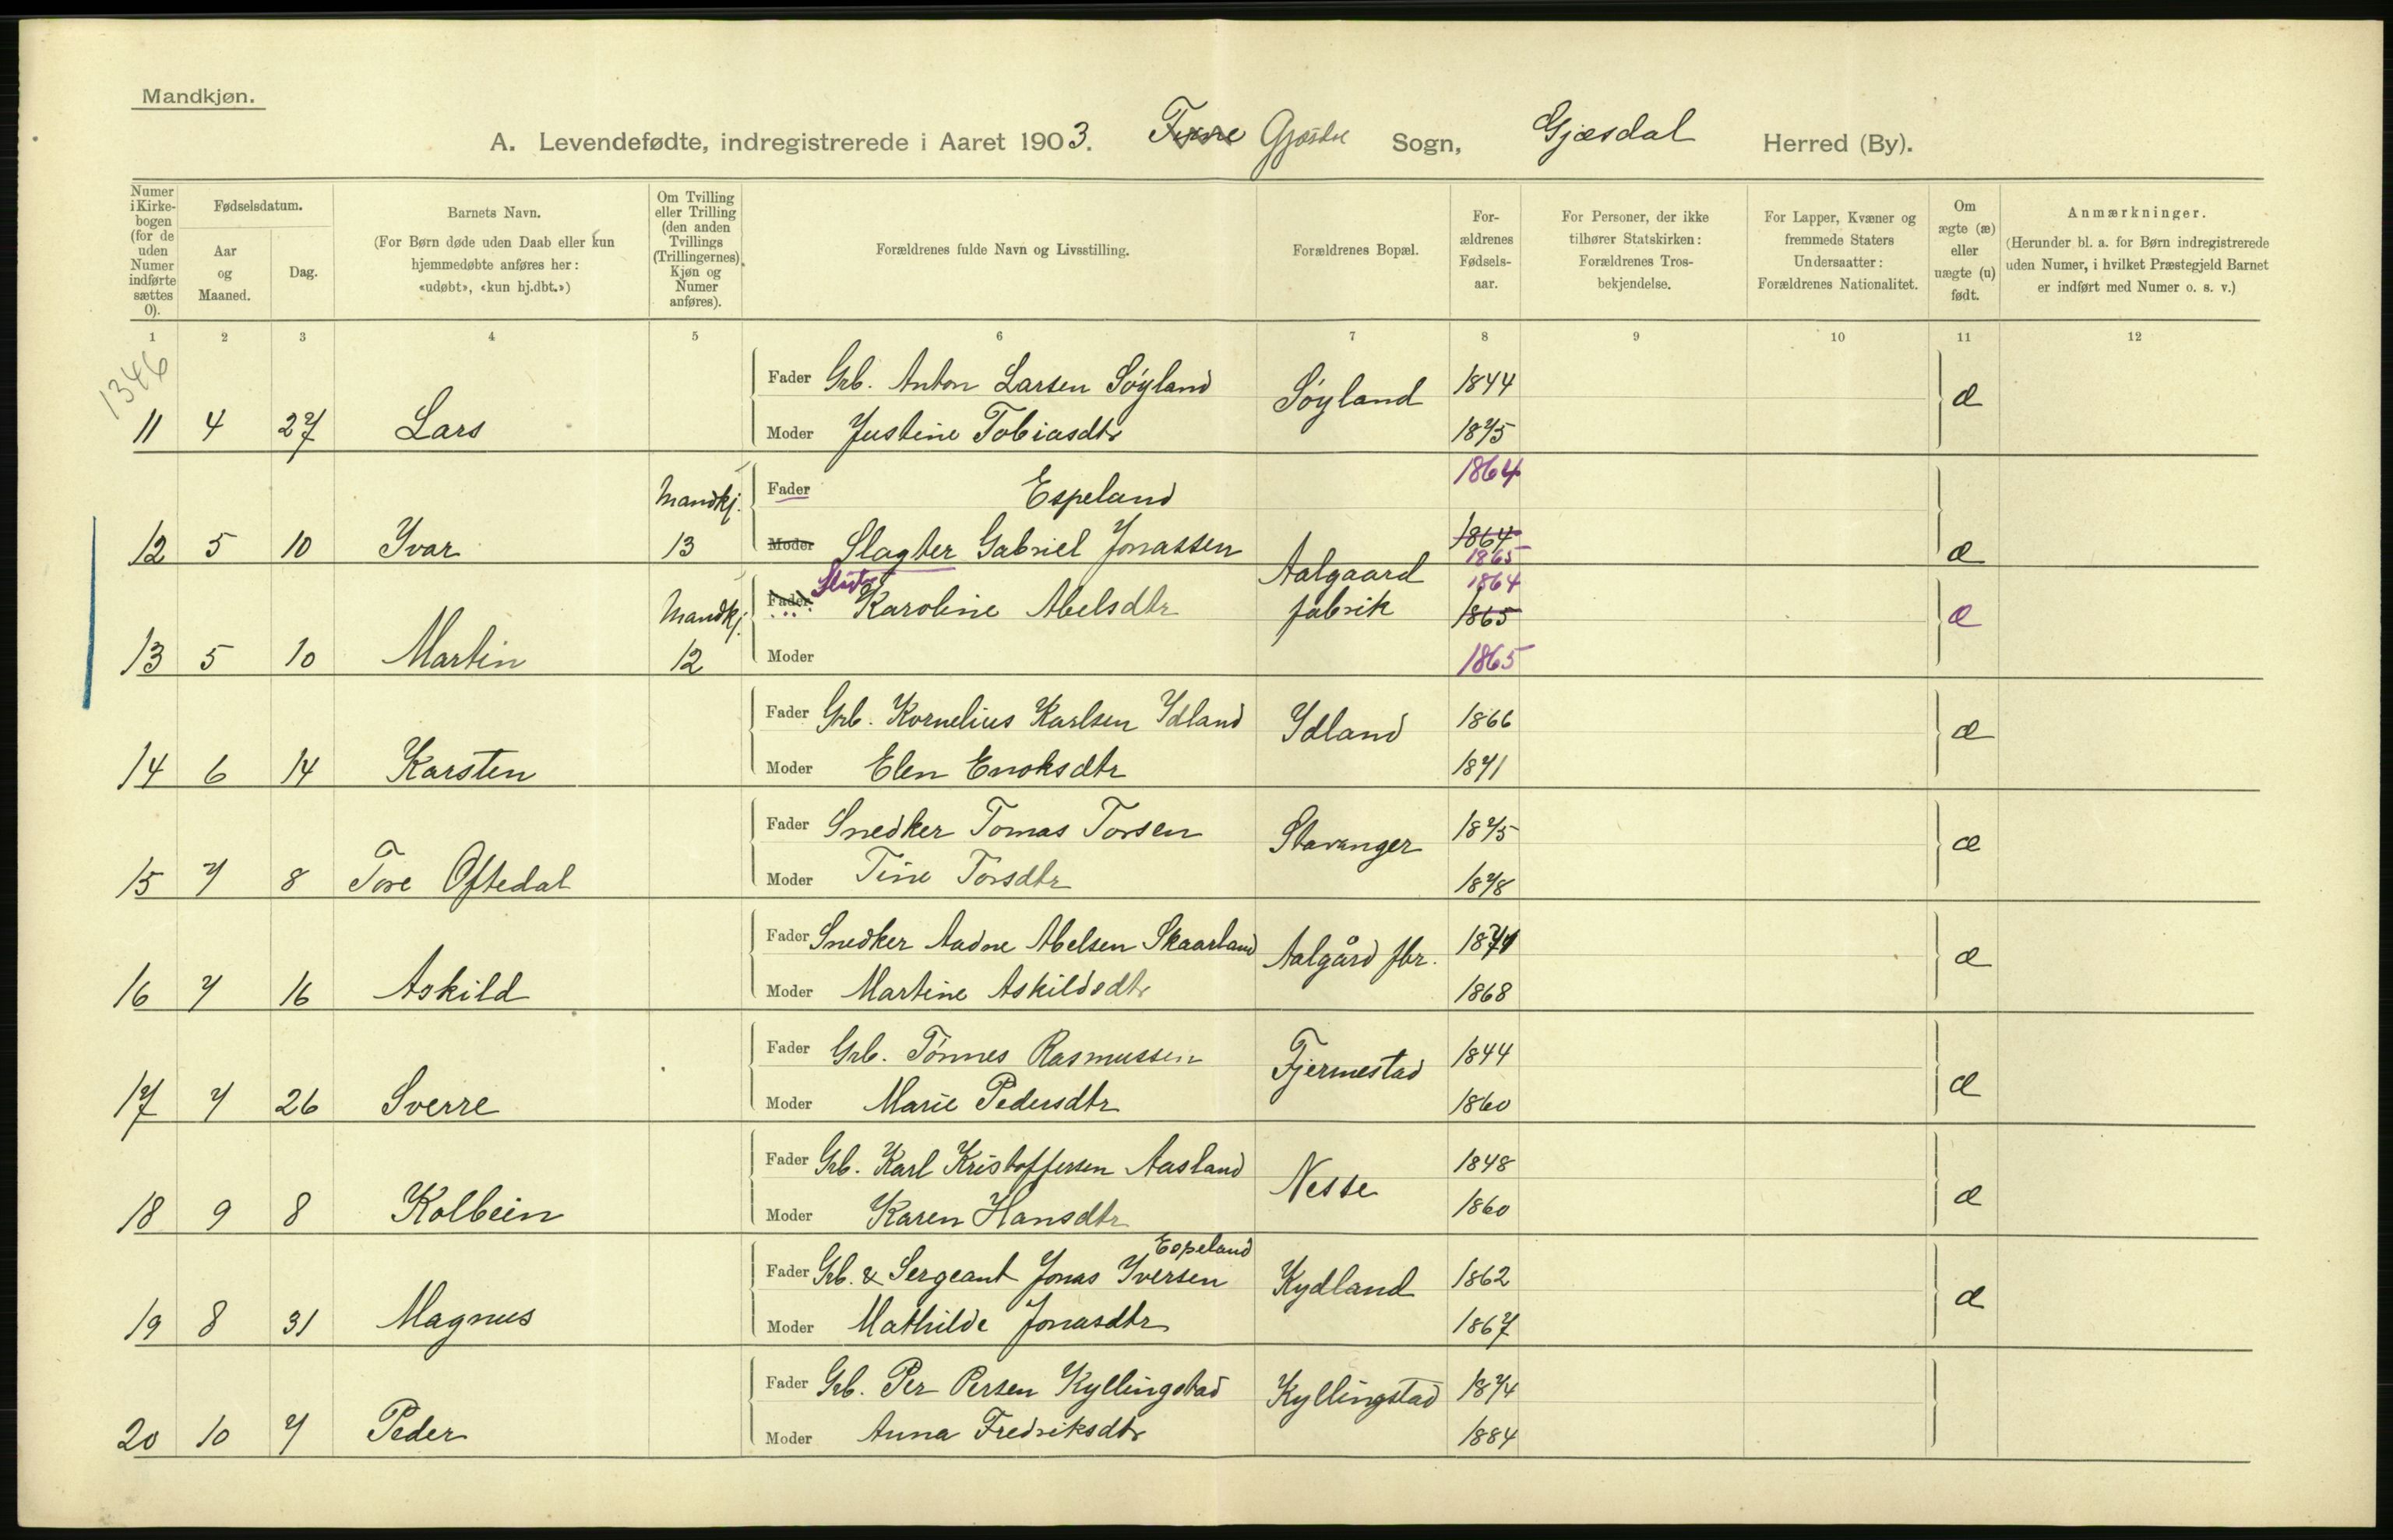 Mandkjøn.
A. Levendefødte, indregistrerede i Aaret 1903. Gjæsdal Sogn, Gjæsdal Herred (By).
Numer i Kirke-bogen (for de uden Numer indførte sættes 0).
Fødselsdatum.
Aar og Maaned.
Dag.
Barnets Navn.
(For Børn døde uden Daab eller kun hjemmedøbte anføres her: «udøbt», «kun hj.dbt.»)
Om Tvilling eller Trilling (den anden Tvillings (Trillingernes) Kjøn og Numer anføres).
Forældrenes fulde Navn og Livsstilling.
Forældrenes Bopæl.
For-ældrenes Fødsels-aar.
For Personer, der ikke tilhører Statskirken: Forældrenes Tros-bekjendelse.
For Lapper, Kvæner og fremmede Staters Undersaatter: Forældrenes Nationalitet.
Om ægte (æ) eller uægte (u) født.
Anmærkninger.
(Herunder bl. a. for Børn indregistrerede uden Numer, i hvilket Præstegjeld Barnet er indført med Numer o. s. v.)
1 2 3 4 5 6 7 8 9 10 11 12
1346
Fader Grb. Anton Larsen Søyland Søyland 1844 æ
11 4 27 Lars Moder Justine Tobiasdtr 1875
Mandkj. Fader Espeland 1864
12 5 10 Ivar 13 Moder Slagter Gabriel Jonassen 1864 1865 æ
Mandkj. Fader Karoline Abelsdtr Aalgaard fabrik 1864 1865 æ
13 5 10 Martin 12 Moder 1865
Fader Grb. Kornelius Karlsen Ydland Ydland 1866 æ
14 6 14 Karsten Moder Elen Enoksdtr 1871
Fader Snedker Tomas Torsen Stavanger 1875 æ
15 7 8 Tore Oftedal Moder Tine Torsdtr 1878
Fader Snedker Aadne Abelsen Skaarland Aalgård fbr. 1871 æ
16 7 16 Askild Moder Martine Askildsdtr 1868
Fader Grb. Tønnes Rasmussen Fjermestad 1844 æ
17 7 26 Sverre Moder Marie Pedersdtr 1860
Fader Grb. Karl Kristoffersen Aasland Nesse 1848 æ
18 9 8 Kolbein Moder Karen Hansdtr 1860
Espeland
Fader Grb. & Sergeant Jonas Iversen Kydland 1862 æ
19 8 31 Magnus Moder Mathilde Jonasdtr 1867
Fader Grb. Per Persen Kyllingstad Kyllingstad 1874
20 10 7 Peder Moder Anna Fredriksdtr 1884